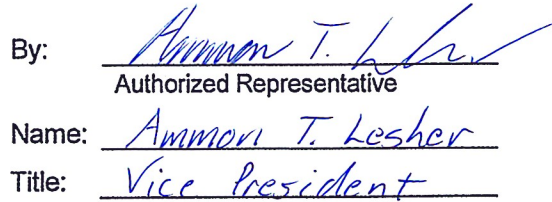 By: Ammon T. Lesher
Authorized Representative
Name: Ammon T. Lesher
Title: Vice President